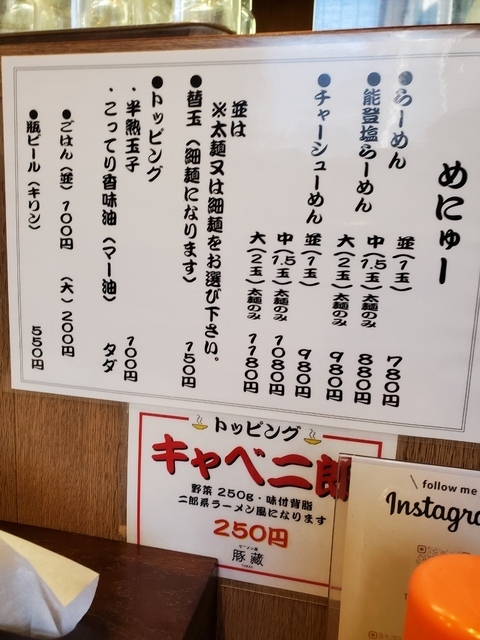 めにゅー
●らーめん
●能登塩らーめん
並(1玉) 780円
中(1.5玉)太麺のみ 880円
大(2玉)太麺のみ 980円
●チャーシューめん
並(1玉) 980円
中(1.5玉)太麺のみ 1080円
大(2玉)太麺のみ 1180円
並は
※太麺又は細麺をお選び下さい。
●替玉(細麺になります) 150円
●トッピング
・半熟玉子 100円
・こってり香味油(マー油) タダ
●ごはん(並)100円 (大)200円
●瓶ビール(キリン) 550円
トッピング
キャベ二郎
野菜 250g・味付背脂
二郎系ラーメン風になります
250円
豚蔵
follow me
Instagra